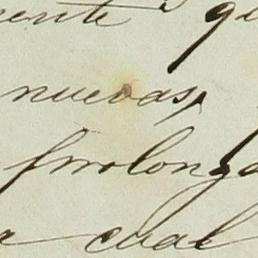 ente
nuevas,
prolonga
a cual